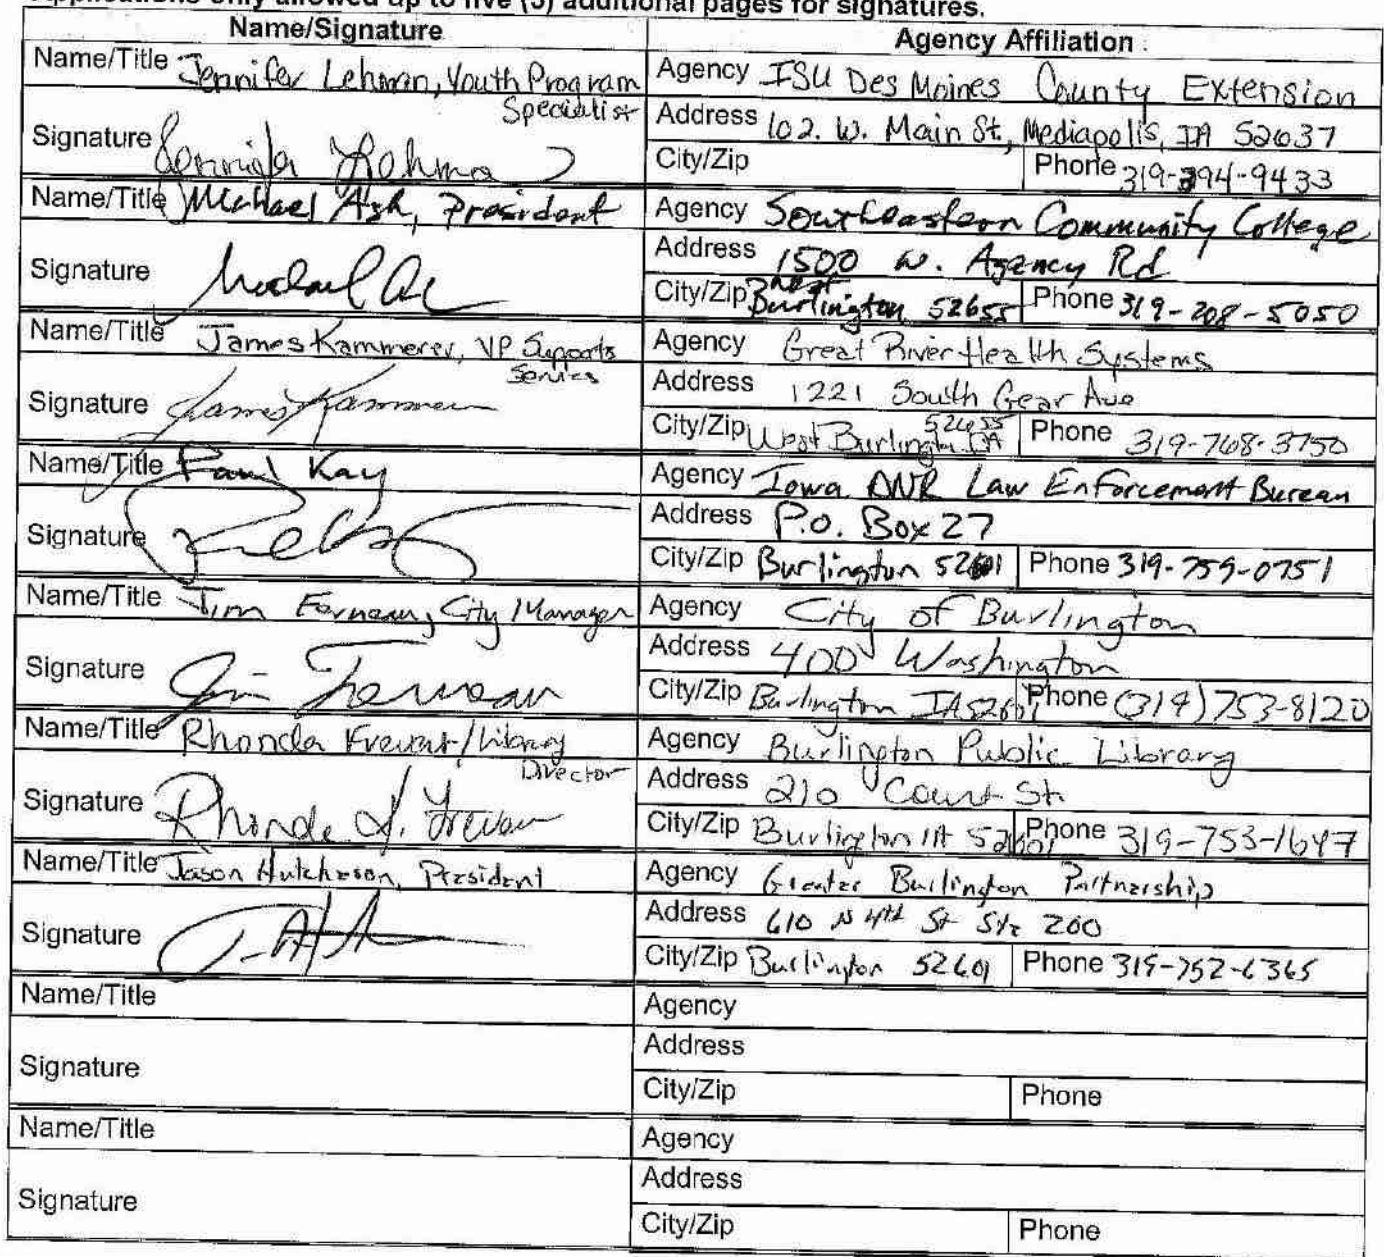 Applications only allowed up to five (5) additional pages for signatures.
Name/Signature Agency Affiliation
Name/Title Jennifer Lehman, Youth Program Specialist
Agency ISU Des Moines County Extension
Signature Jennifer Lehman
Address 102. W. Main St., Mediapolis, IA 52637
City/Zip Phone 319-394-9433
Name/Title Michael Ash, President
Agency Southeastern Community College
Signature Michael Ash
Address 1500 W. Agency Rd
City/Zip West Burlington 52655 Phone 319-208-5050
Name/Title James Kammerer, VP Supports Services
Agency Great River Health Systems
Signature James Kammerer
Address 1221 South Gear Ave
City/Zip West Burlington, IA 52655 Phone 319-768-3750
Name/Title Paul Kay
Agency Iowa DNR Law Enforcement Bureau
Signature
Address P.O. Box 27
City/Zip Burlington 52601 Phone 319-759-0751
Name/Title Jim Ferneau, City Manager
Agency City of Burlington
Signature Jim Ferneau
Address 400 Washington
City/Zip Burlington IA 52601 Phone (319) 753-8120
Name/Title Rhonda Frevert/Library Director
Agency Burlington Public Library
Signature Rhonda J. Frevert
Address 210 Court St.
City/Zip Burlington IA 52601 Phone 319-753-1647
Name/Title Jason Hutcheson, President
Agency Greater Burlington Partnership
Signature
Address 610 N 4th St Ste 200
City/Zip Burlington 52601 Phone 319-752-6365
Name/Title
Agency
Signature
Address
City/Zip Phone
Name/Title
Agency
Signature
Address
City/Zip Phone